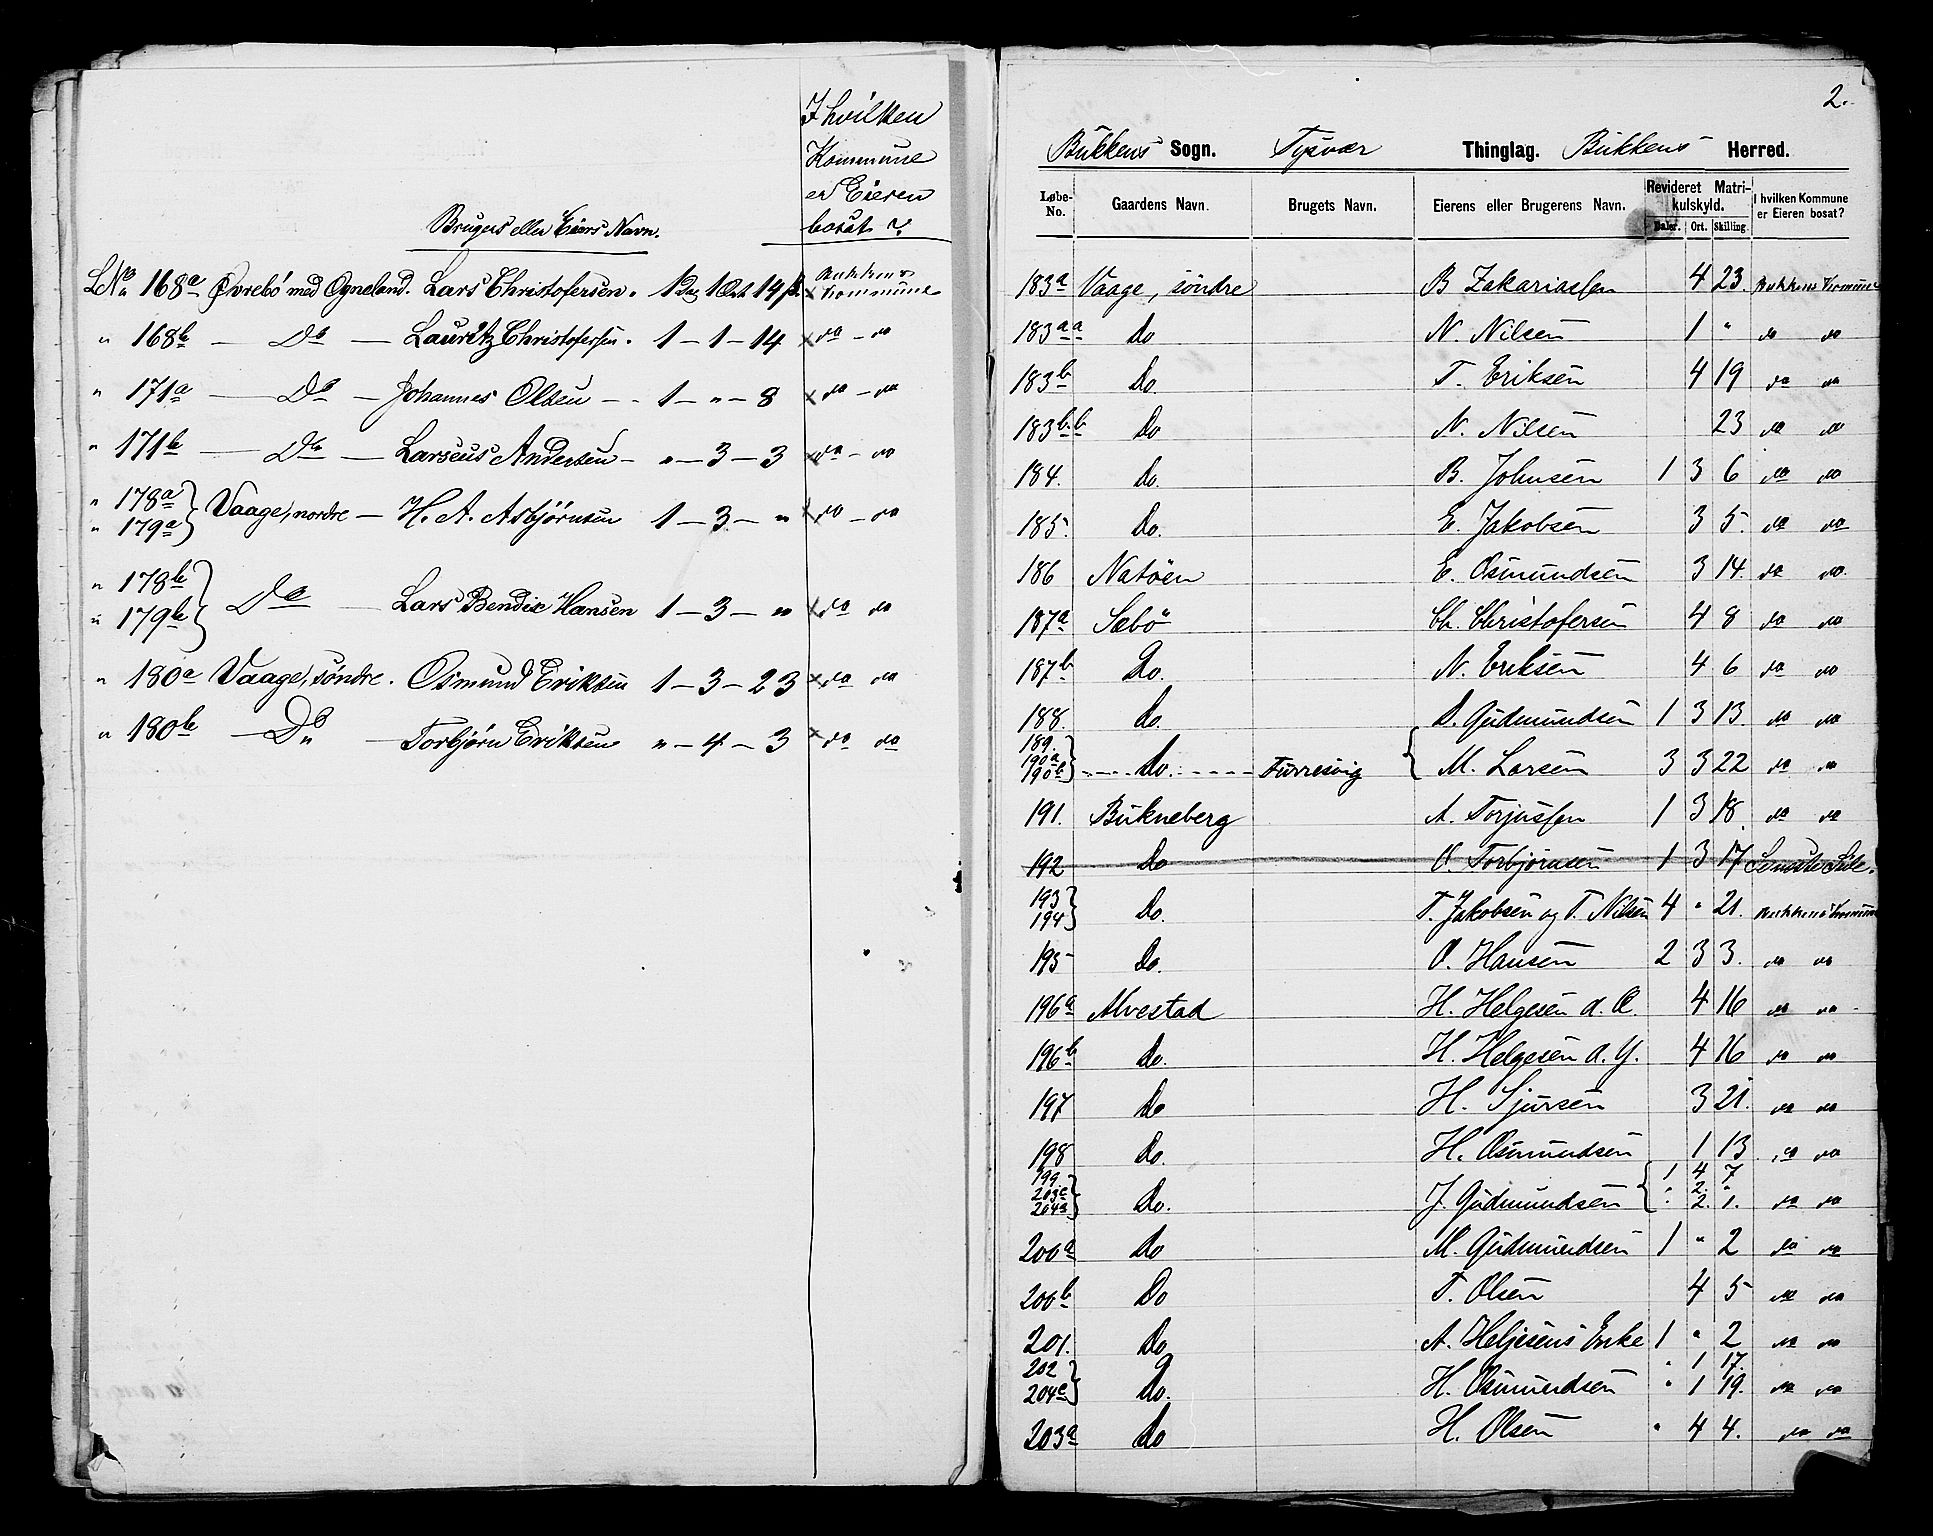 I hvilken
Kommune
er Eieren
bosat?
Brugers eller Eiers Navn.
LNo 168a Øvrebö med Ogneland. Lars Christofersen. 1 Dlr 1 Ort 14 ß. x Bukkens Kommune
" 168b — Do — Lauritz Christofersen. 1 — 1 — 14 x do — do
" 171a — Do — Johannes Olsen — 1 — " — 8 x do — do
" 171b — Do — Larseus Andersen — " — 3 — 3 x do — do
" 178a
" 179a } Vaage, nordre — H. A. Asbjørnsen 1 — 3 — " x do — do
" 178b
" 179b } Do — Lars Bendix Hansen 1 — 3 — " x do do
" 180a Vaage, søndre. Osmund Eriksen 1 — 3 — 23 x do do
" 180b — Do — Torbjørn Eriksen " — 4 — 3 x do do
2.
Bukkens Sogn. Tysvær Thinglag. Bukkens Herred.
Løbe-No. Gaardens Navn. Brugets Navn. Eierens eller Brugerens Navn. Revideret Matrikulskyld. Daler. Ort. Skilling. I hvilken Kommune er Eieren bosat?
183a Vaage, søndre B Zakariassen 4 23. Bukkens Kommune
183aa Do N. Nilsen 1 " do do
183b Do. T. Eriksen 4 19 do do
183bb Do N. Nilsen 23 do do
184. Do. B. Johnsen 1 3 6 do do
185. Do. E. Jakobsen 3 5. do do
186 Natöen E. Osmundsen 3 14. do do.
187a Sæbö Ch. Christofersen 4 8 do do
187b Do. N. Eriksen 4 6 do do
188. Do. D. Gudmundsen 1 3 13. do do
189.
190a
190b } Do. Turresvig { M. Larsen 3 3 22 do do
191. Bukneberg A. Torjussen 1 3 18. do do
192 Do O. Torbjørnsen 1 3 17
193
194 } Do. T. Jakobsen og T. Nilsen 4 " 21. Bukkens Kommune
195 Do. O. Hansen 2 3 3. do do
196a Alvestad H. Helgesen d. Æ. 4 16 do do
196b Do. H. Helgesen d. Y. 4 16 do do
197 Do H. Sjursen 3 21. do do
198 Do. H. Osmundsen 1 13. do do
199. 1 4 7
203c " 2. "
204b } Do. J. Gudmundsen { " 2. 1. do do
200a Do M. Gudmundsen 1 " 2 do do
200b Do T. Olsen 4 5 do do
201. Do A. Heljesens Enke 1 " 2 do do
202 " 1 17.
204c } Do. H. Osmundsen " 1 19. do do
203a Do H. Olsen " 4 4. do do